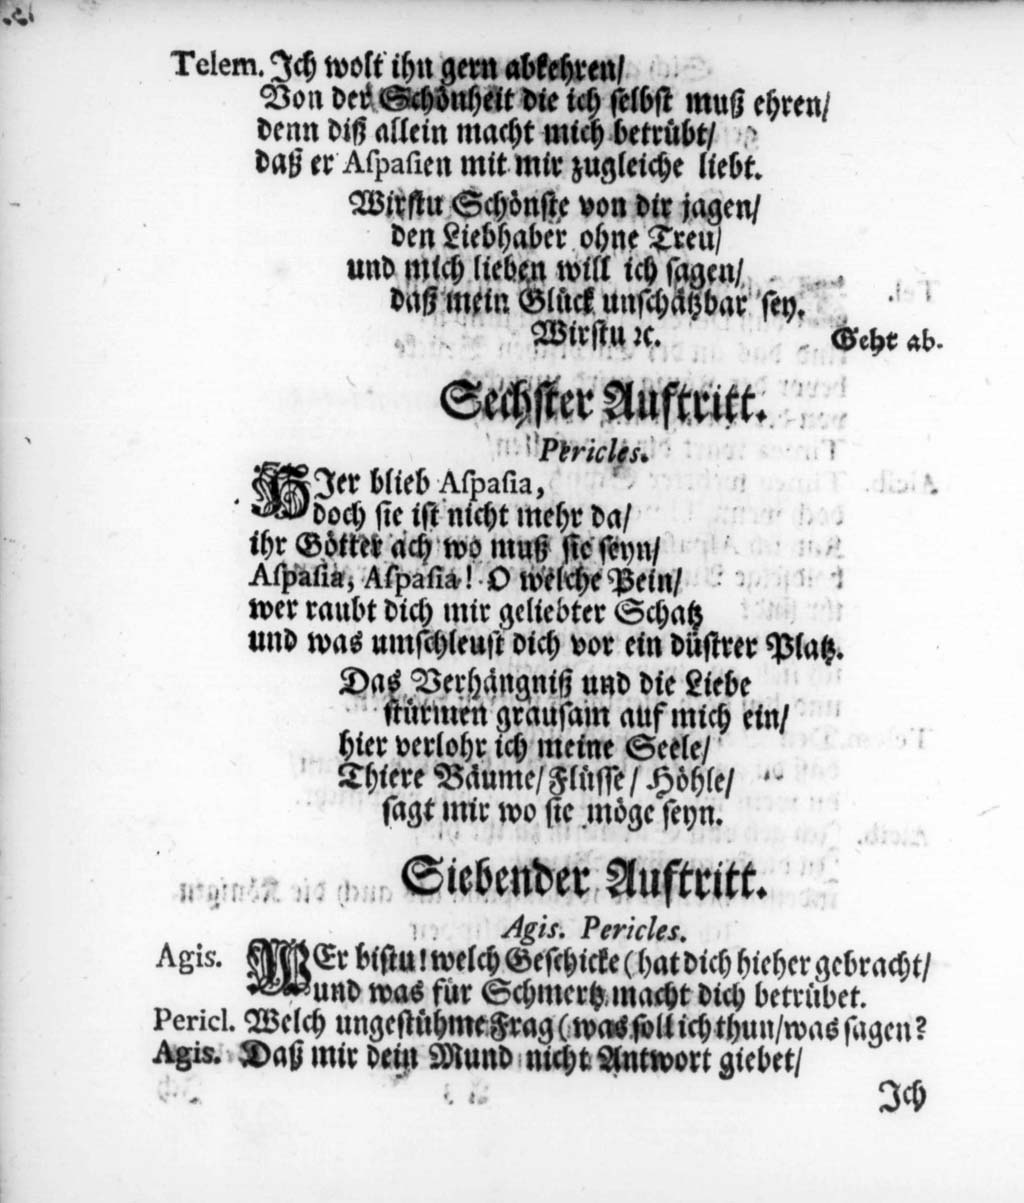 Telem. Ich wolt ihn gern abkehren/
Von der Schönheit die ich selbst muß ehren/
denn diß allein macht mich betrübt/
daß er Aſpaſien mit mir zugleiche liebt.
Wirstu Schönste von dir jagen/
den Liebhaber ohne Treu/
und mich lieben will ich sagen/
daß mein Glück unschätzbar sey.
Wirstu ꝛc. Geht ab.
Sechster Auftritt.
Pericles.
HIer blieb Aſpaſia,
doch sie ist nicht mehr da/
ihr Götter ach wo muß sie seyn/
Aſpaſia, Aſpaſia! O welche Pein/
wer raubt dich mir geliebter Schatz
und was umschleust dich vor ein düstrer Platz.
Das Verhängniß und die Liebe
stürmen grausam auf mich ein/
hier verlohr ich meine Seele/
Thiere Bäume/ Flüsse/ Höhle/
sagt mir wo sie möge seyn.
Siebender Auftritt.
Agis. Pericles.
Agis. WEr bistu! welch Geschicke (hat dich hieher gebracht/
und was für Schmertz macht dich betrübet.
Pericl. Welch ungestühme Frag (was soll ich thun/ was sagen?
Agis. Daß mir dein Mund nicht Antwort giebet/
Ich